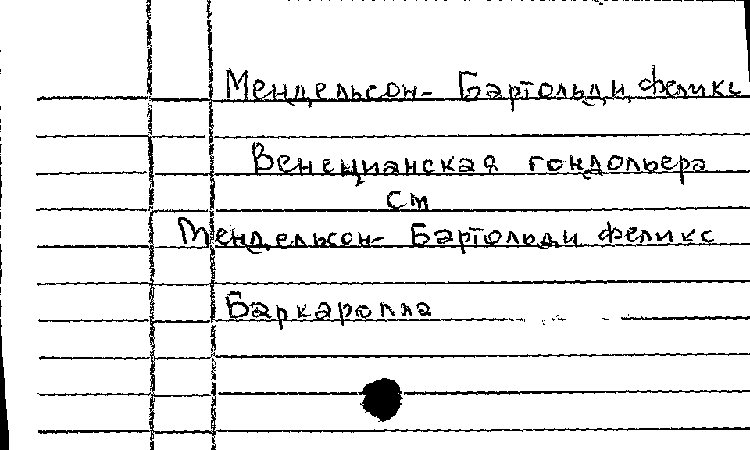 Мендельсон- Бартольди, Феликс
Венецианская гондольера
см
Мендельсон- Бартольди Феликс
Баркаролла